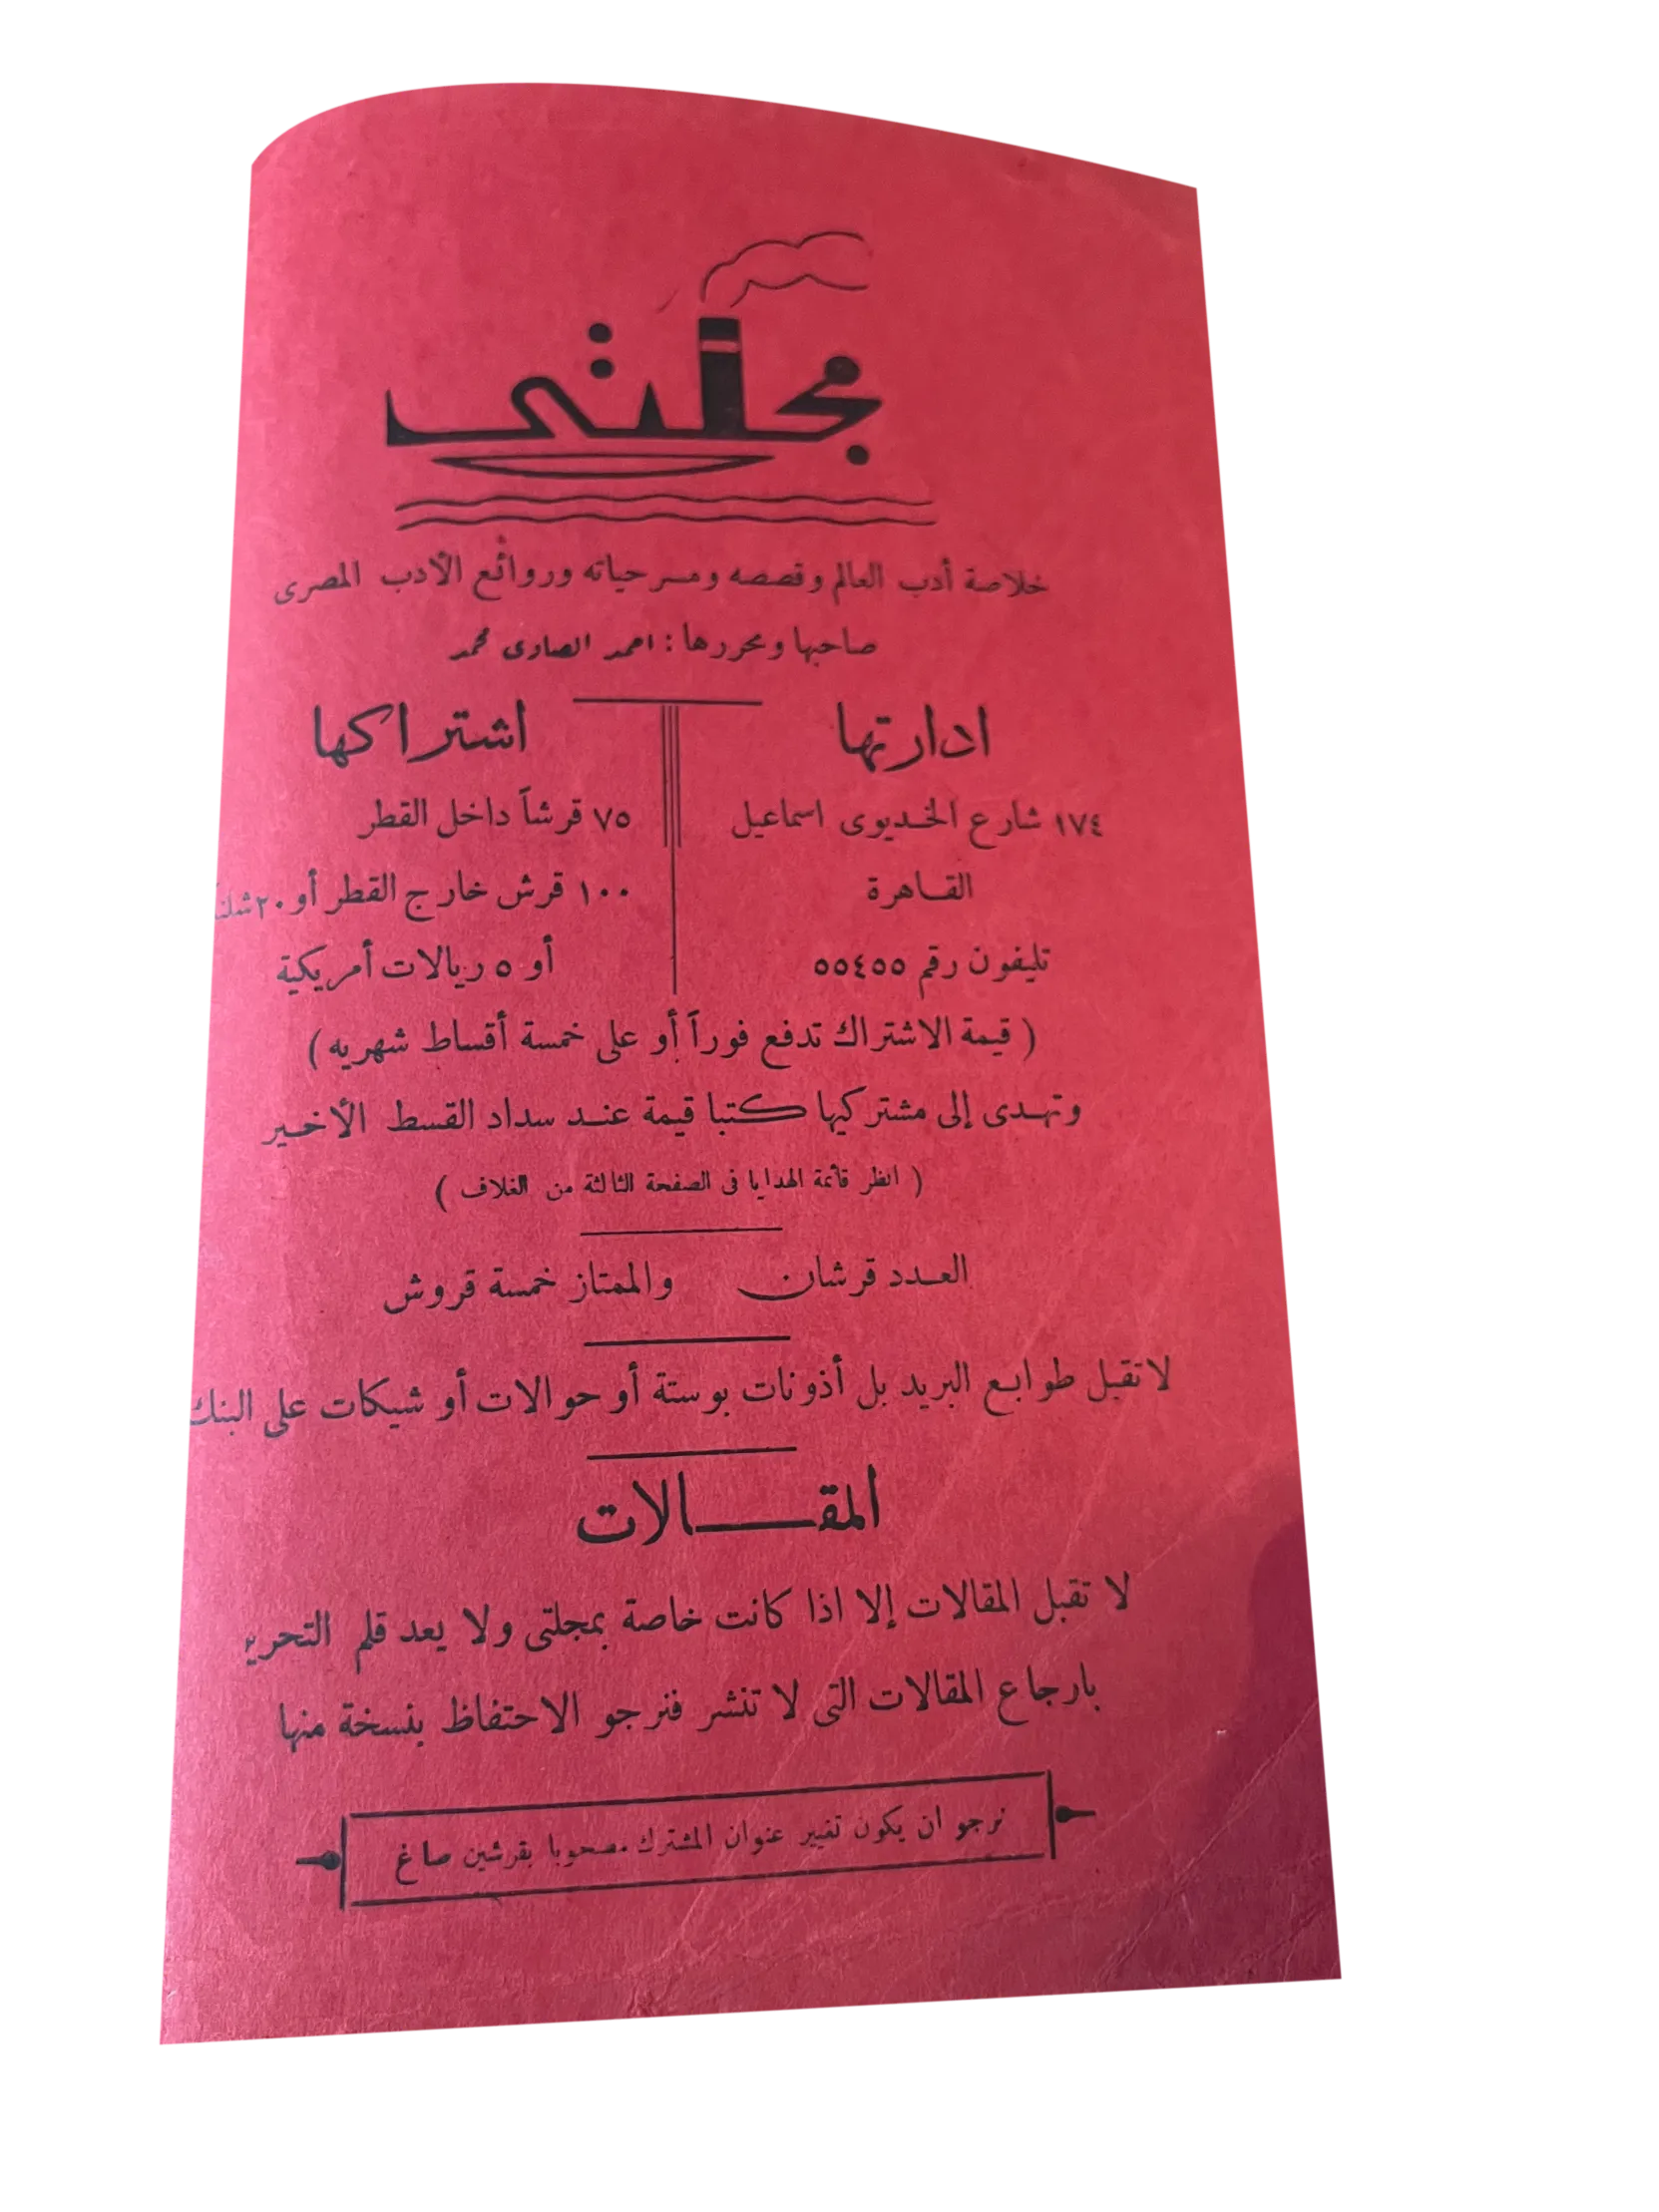 مجلتى
خلاصة أدب العالم وقصصه ومسرحياته وروائع الأدب المصرى
صاحبها ومحررها : احمد الصاوى محمد
ادارتها
١٧٤ شارع الخديوى اسماعيل
القاهرة
تليفون رقم ٥٥٤٥٥
اشتراكها
٧٥ قرشاً داخل القطر
١٠٠ قرش خارج القطر أو ٢٠
أو ٥ ريالات أمريكية
( قيمة الاشتراك تدفع فوراً أو على خمسة أقساط شهريه )
وتهدى إلى مشتركيها كتبا قيمة عند سداد القسط الأخير
( انظر قائمة الهدايا فى الصفحة الثالثة من الغلاف )
العدد قرشان والممتاز خمسة قروش
لا تقبل طوابع البريد بل أذونات بوستة أو حوالات أو شيكات على البنك
المقالات
لا تقبل المقالات إلا اذا كانت خاصة بمجلتى ولا يعد قلم
بارجاع المقالات التى لا تنشر فنرجو الاحتفاظ بنسخة منها
نرجو ان يكون تغيير عنوان المشترك مصحوبا بقرشين صاغ